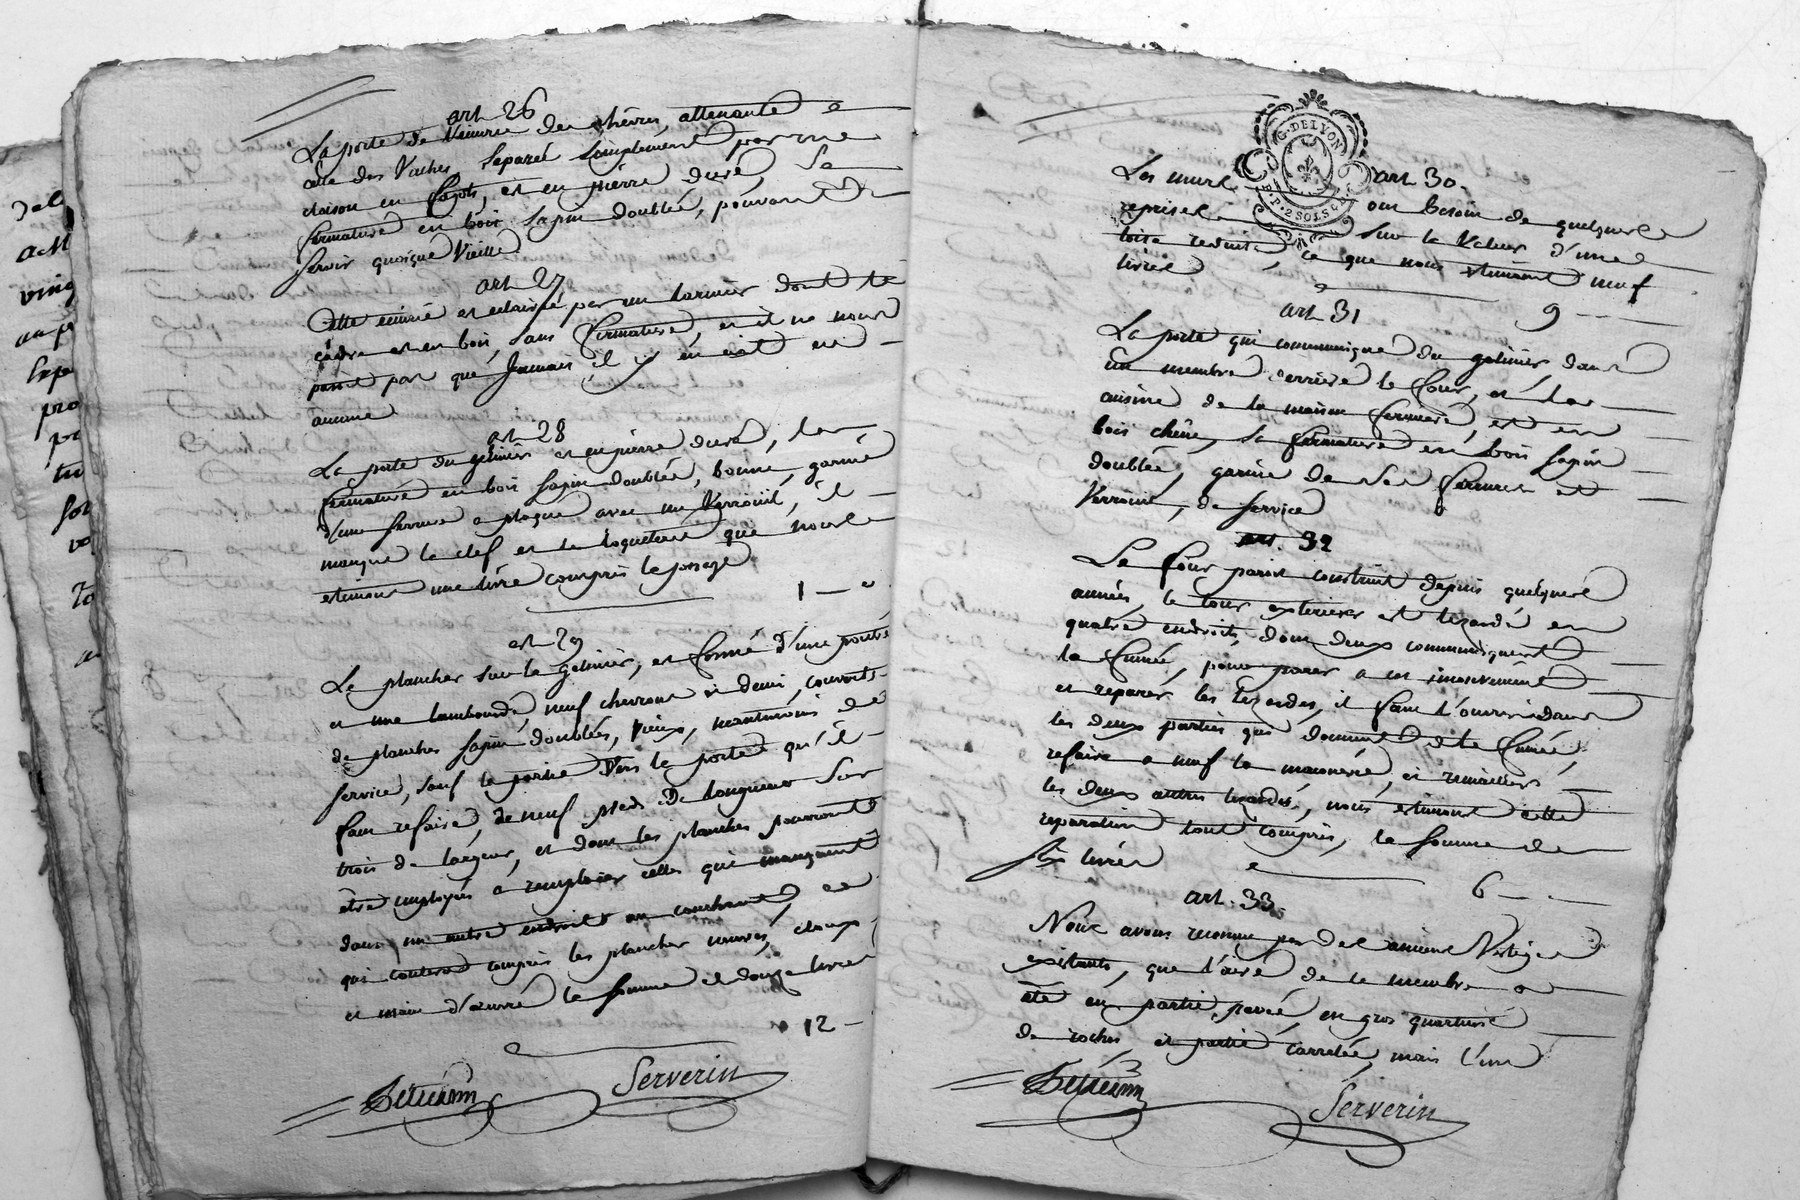 art 26
La porte de l'écurie des chèvres, attenante a
celle des Vaches separée simplement par une
cloison en fagots, est en pierre duré, la
fermature en bois sapin doublée, pouvant
servir quoique Vieille
art 27
Cette écurie est eclairée par un larmier dont le
cadre est en bois, sans fermature, et il ne nous
paroit pas que Jamais il y en eut eu
aucune
art 28
La porte du gelinier est en pierre dure, la
fermature en bois sapin doublée, bonne, garnie
d'une serrure a plaque avec un Verrouil, il
manque la clef et le loqueteau que nous
estimons une livre compris le posage
1
art 29
Le plancher sur le gelinier, est formé d'une poutre
et une lambourde, neuf chevrons et demi, couverts
de planches sapin doublées, vieux, neantmoins de
service, sauf la partie Vers la porte qu'il
faut refaire, de neuf pieds de longueur sur
trois de largeur, et dont les planches pourront
être employés a remplacer celles qui manquent
dans un autre endroit au couchant, ce
qui coutera compris les planches neuves, cloux,
et main d'œuvre la somme de douze livres
12
Serverin
G. DE LYON
2 SOLS
art 30.
Les murs ont besoin de quelques
reprises sur la Valeur d'une
toise reduite, ce que nous estimons neuf
livres
9
art 31
La porte qui communique du gelinier dans
un membre derriere le four, et la
cuisine de la maison fermiere, est en
bois chêne, la fermature en bois sapin
doublée, garnie de ses ferrures et
Verrouil, de service
art. 32
Le four paroit construit depuis quelques
années, le tour exterieur est lezardé en
quatre endroits, dont deux communiquent
la fumée, pour parer a cet inconvenient
et reparer les lezardes, il faut l'ouvrir dans
les deux parties qui donnent de la fumée,
refaire a neuf la maconnerie, et remailler
les deux autres lezardes, nous estimons cette
reparation tout compris, la somme de
six livres
6
art. 33.
Nous avons reconnu par des anciens Vestiges
existants, que l'aire de ce membre a
été en partie pavée en gros quartiers
de roches et partie carrelée, mais l'un
Serverin